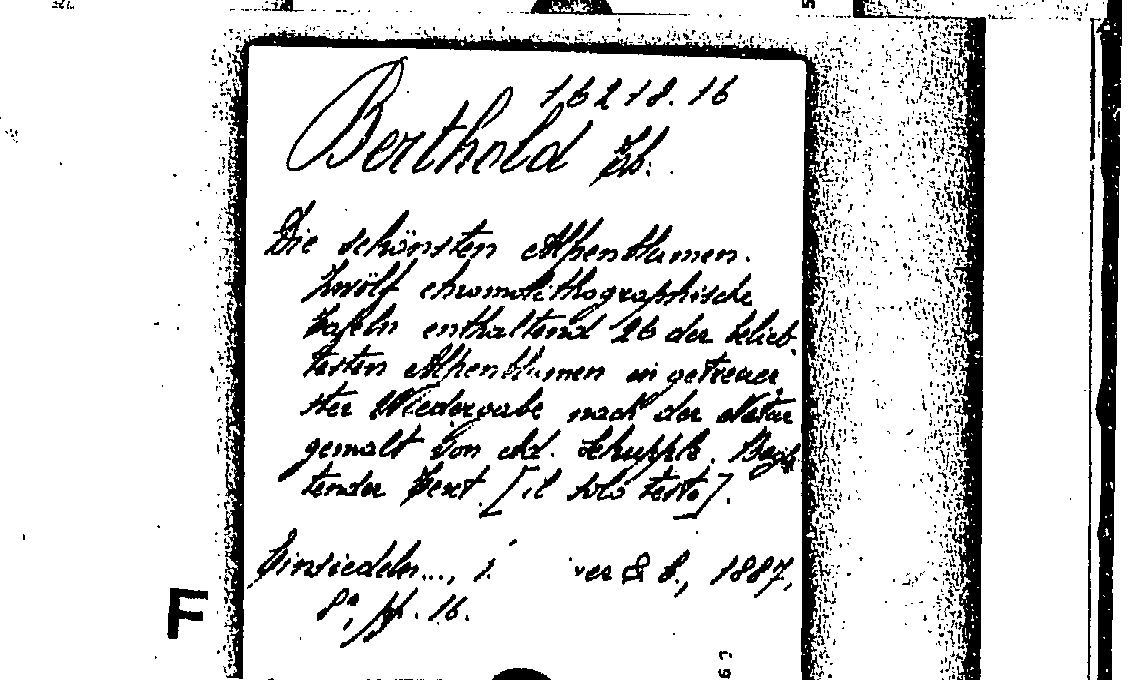 16218.16
Berthold
Die schönsten Alpenblumen.
Zwölf chromolithographische
Tafeln enthaltend 26 der belieb-
testen Alpenblumen in getreue-
ster Wiedergabe nach der Natur
gemalt von Ad. Schuppli. Begl
tender Text [il solo testo].
Einsiedeln..., 1887,
8º, pp. 16.
F